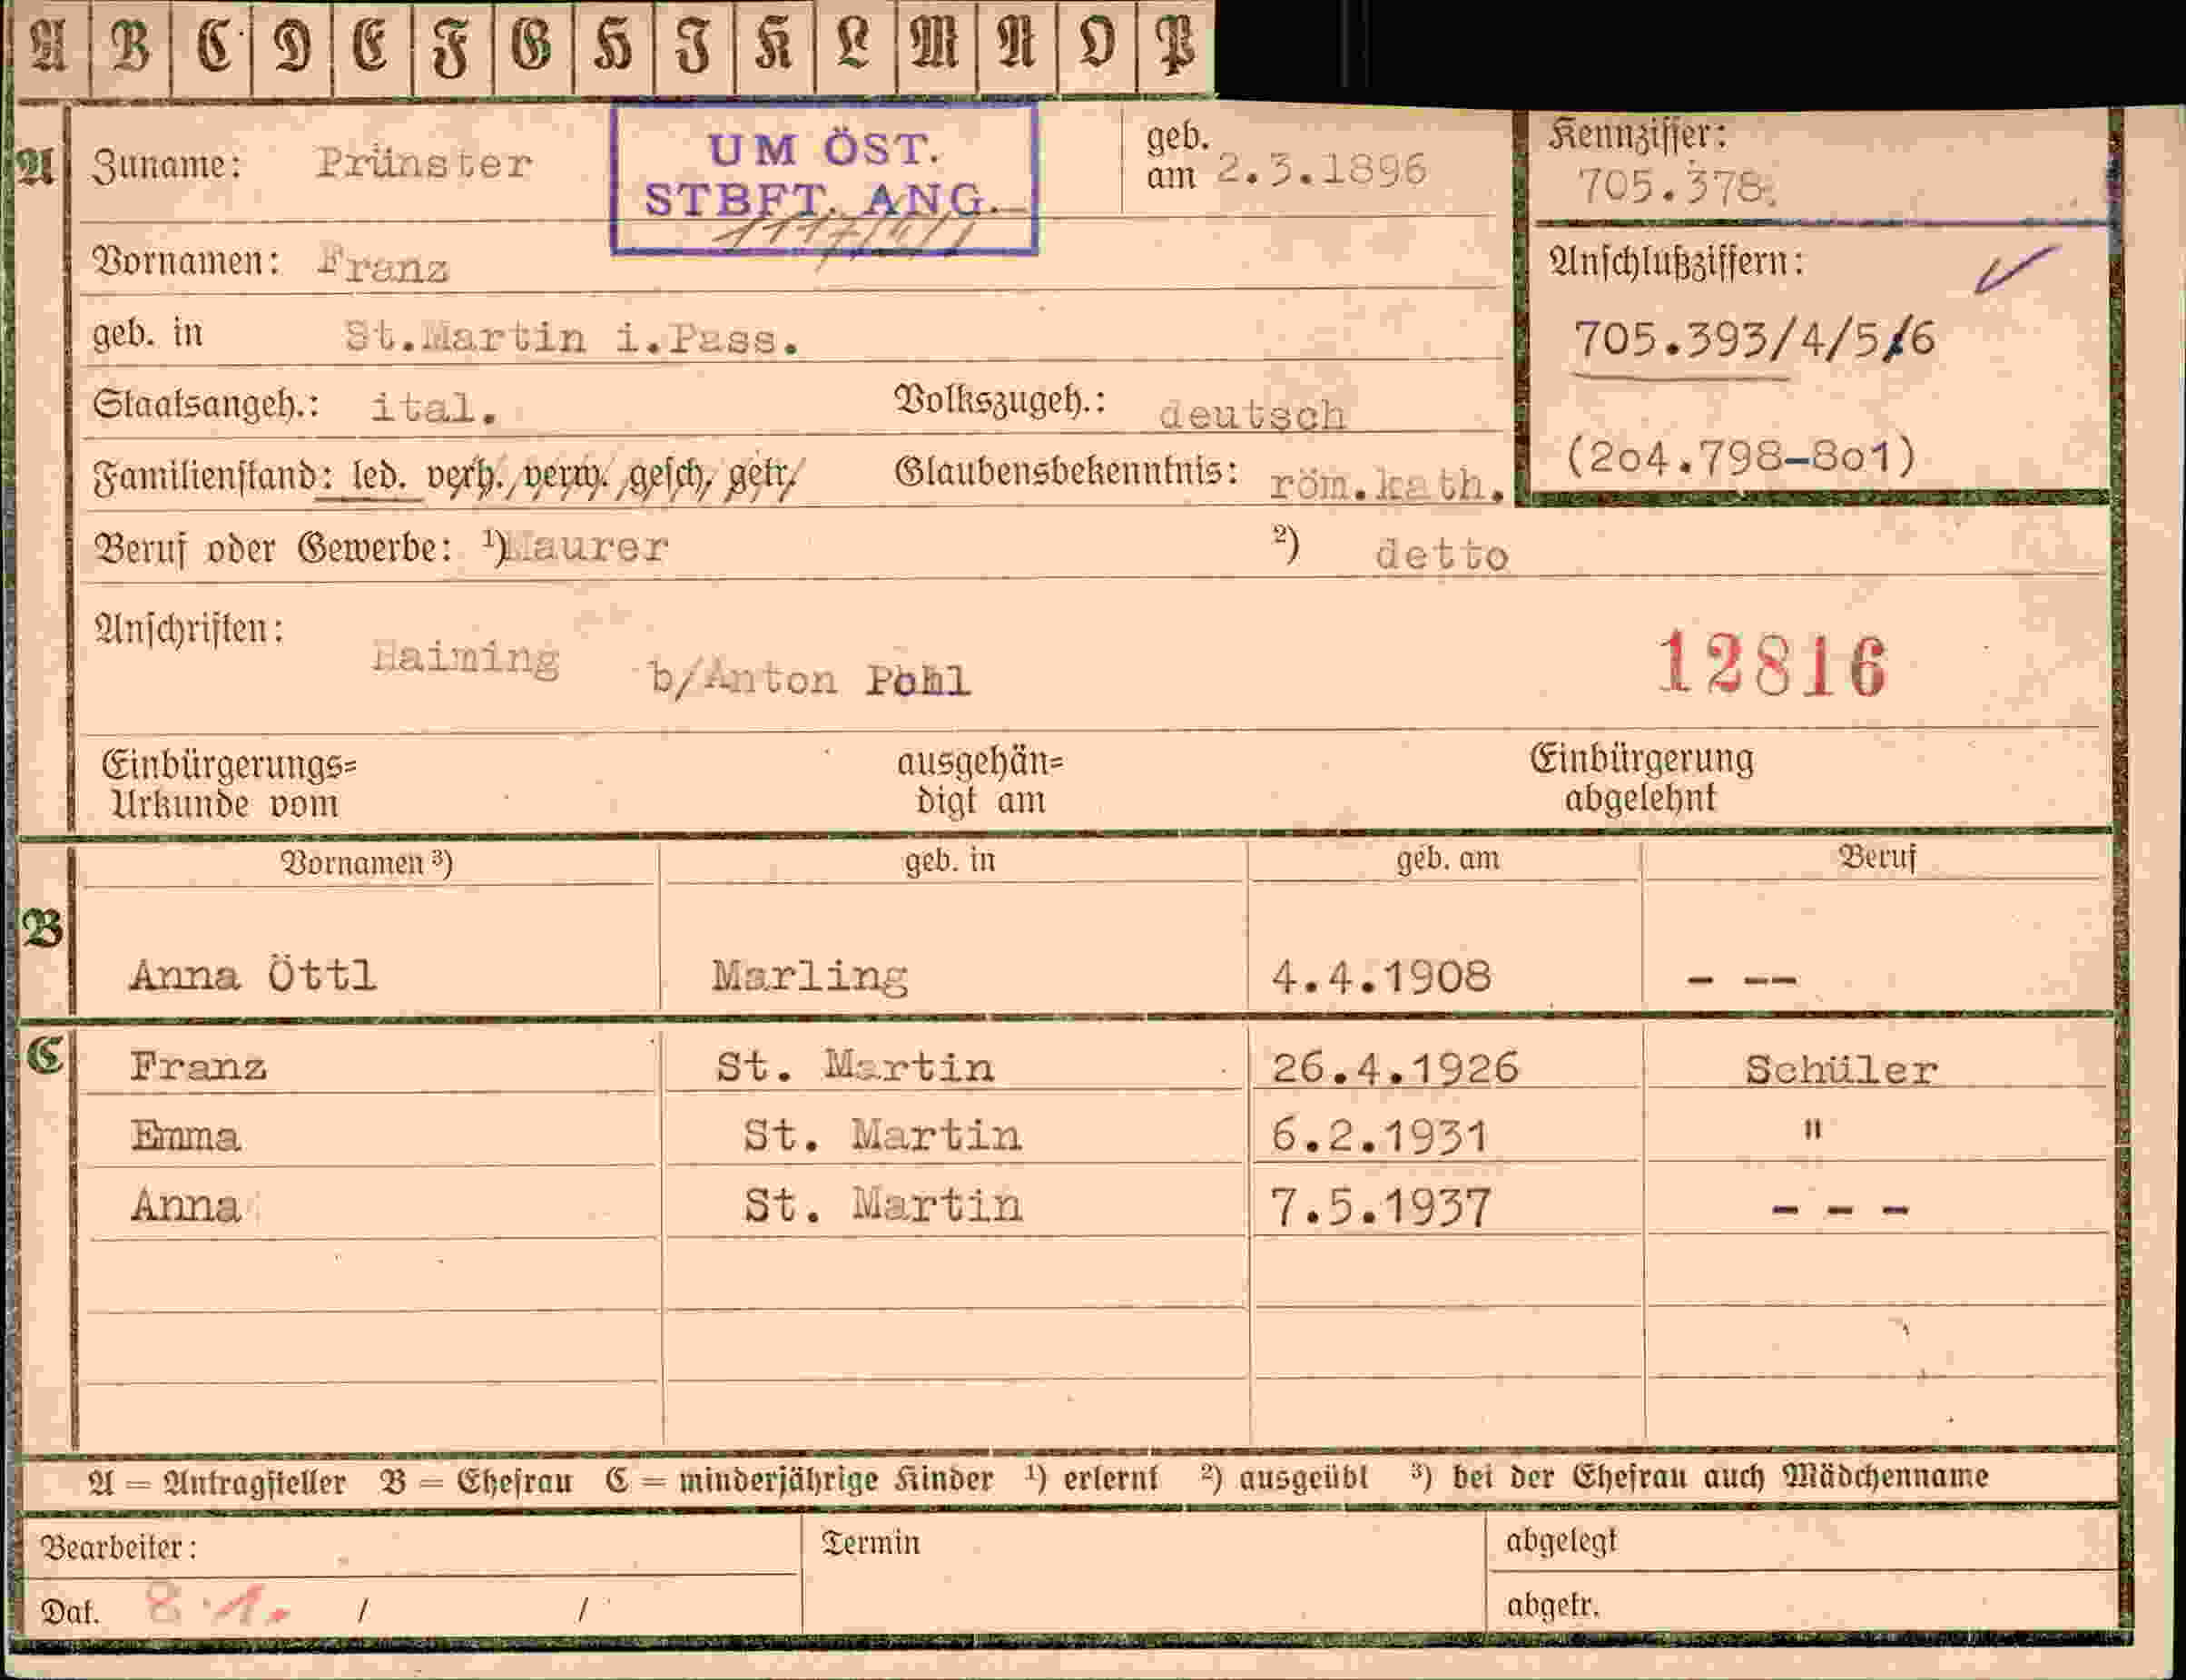 A B C D E F G H J K L M N O P
A Zuname: Prünster
UM ÖST.
STBFT. ANG.
geb.
am 2.3.1896
Kennziffer:
705.378.
Vornamen: Franz
Anschlußziffern:
705.393/4/5/6
(2o4.798-8o1)
geb. in St.Martin i.Pass.
Staatsangeh.: ital. Volkszugeh.: deutsch
Familienstand: led. verh. verw. gesch. getr. Glaubensbekenntnis: röm.kath.
Beruf oder Gewerbe: ¹) Maurer ²) detto
Anschriften:
Haiming b/Anton Pohl
12816
Einbürgerungs= ausgehän= Einbürgerung
Urkunde vom digt am abgelehnt
Vornamen ³) geb. in geb. am Beruf
B
Anna Öttl Marling 4.4.1908 - --
C Franz St. Martin 26.4.1926 Schüler
Emma St. Martin 6.2.1931 "
Anna St. Martin 7.5.1937 - - -
A = Antragsteller B = Ehefrau C = minderjährige Kinder ¹) erlernt ²) ausgeübt ³) bei der Ehefrau auch Mädchenname
Bearbeiter: Termin abgelegt
Dat. 8.1. / / abgetr.